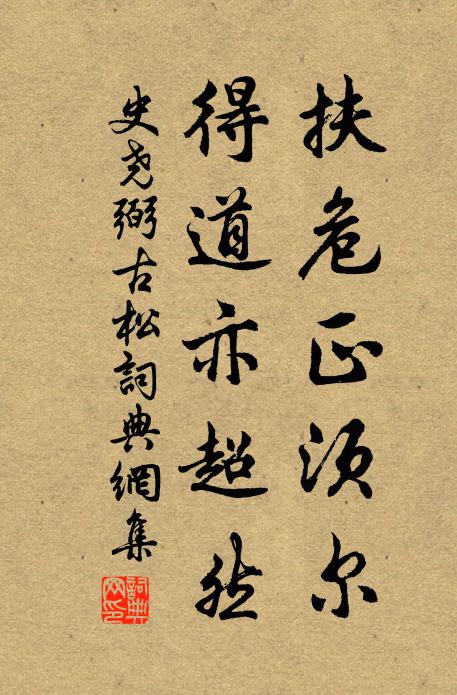 扶危正须尔
得道亦超然
史尧弼古松詞典網集
詞典网印